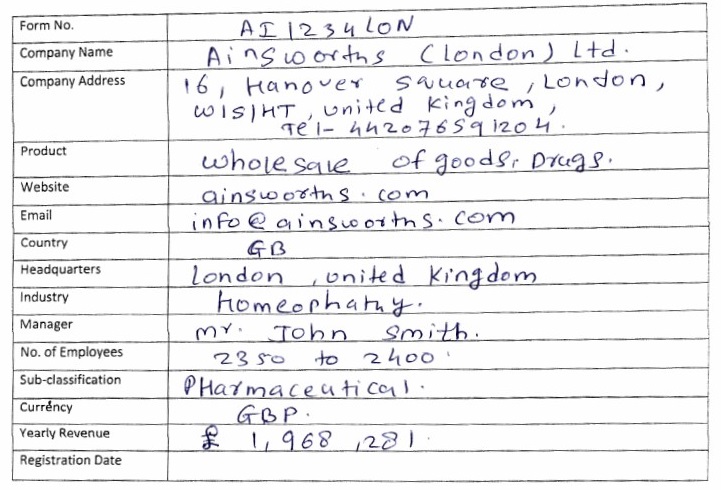 Form No. AI1234LON
Company Name Ainsworths (London) Ltd.
Company Address 16, Hanover Square, London,
W1S1HT, United Kingdom,
Tel- 442076591204.
Product Wholesale of goods, Drugs.
Website ainsworths.com
Email info@ainsworths.com
Country GB
Headquarters London, United Kingdom
Industry Homeophathy.
Manager Mr. John Smith.
No. of Employees 2350 to 2400
Sub-classification PHarmaceutical.
Currency GBP.
Yearly Revenue £ 1,968,281.
Registration Date